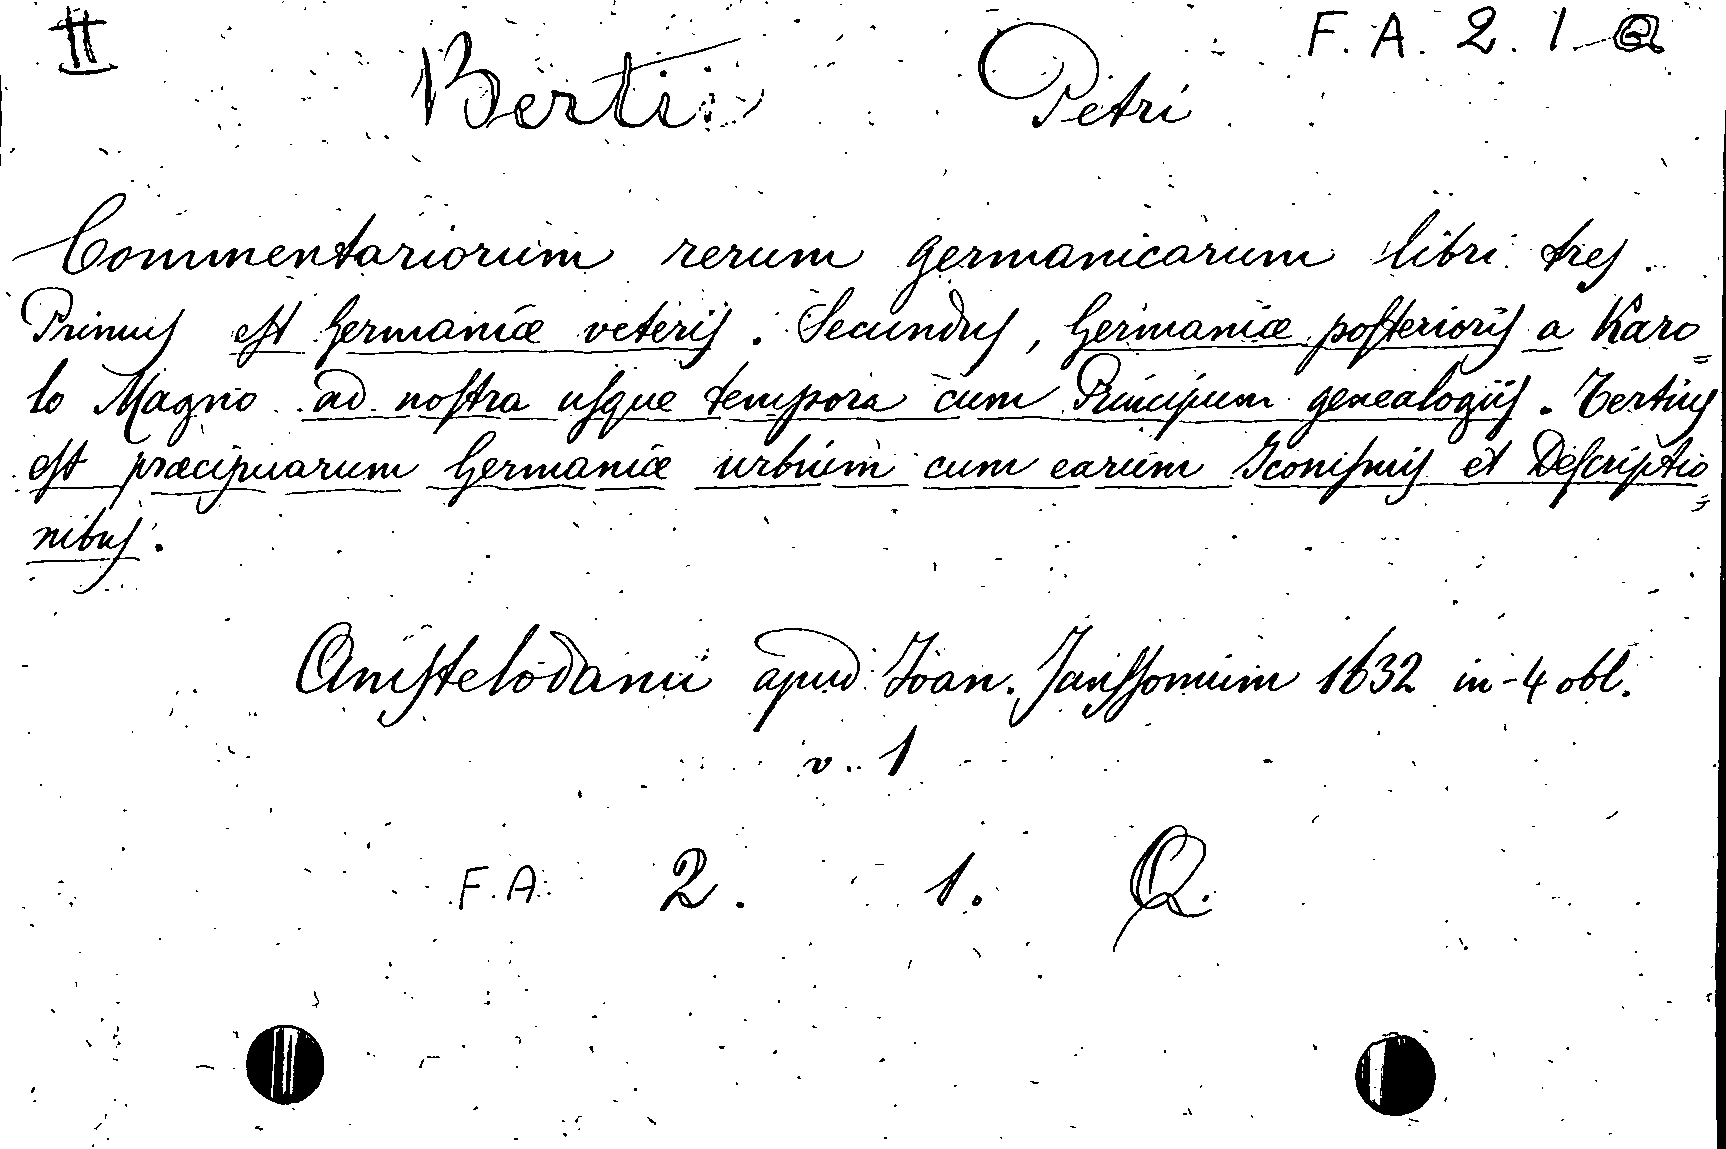 II F. A. 2. 1 Q
Berti Petri
Commentariorum rerum germanicarum libri tres.
Primus est Germaniæ veteris. Secundus, Germaniæ posterioris a Karo=
lo Magno ad nostra usque tempora cum Principum genealogiis. Tertius
est præcipuarum Germaniæ urbium cum earum Iconismis et Descriptio=
nibus.
Amstelodami apud Ioan. Janssonium 1632 in-4 obl.
v. 1
F. A. 2. 1. Q.